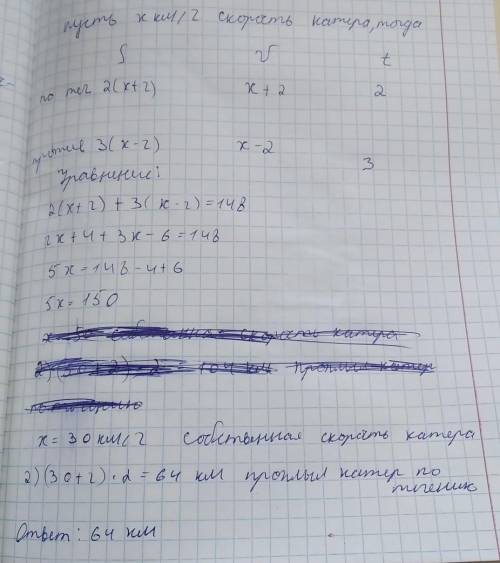 пусть x км/ч скорость катера, тогда
S V t
по теч 2(x+2) x+2 2
против 3(x-2) x-2 3
Уравнение:
2(x+2) + 3(x-2) = 148
2x+4+3x-6=148
5x=148-4+6
5x=150
x=30 км/ч собственная скорость катера
2) (30+2)·2=64 км проплыл катер по
течению
Ответ: 64 км